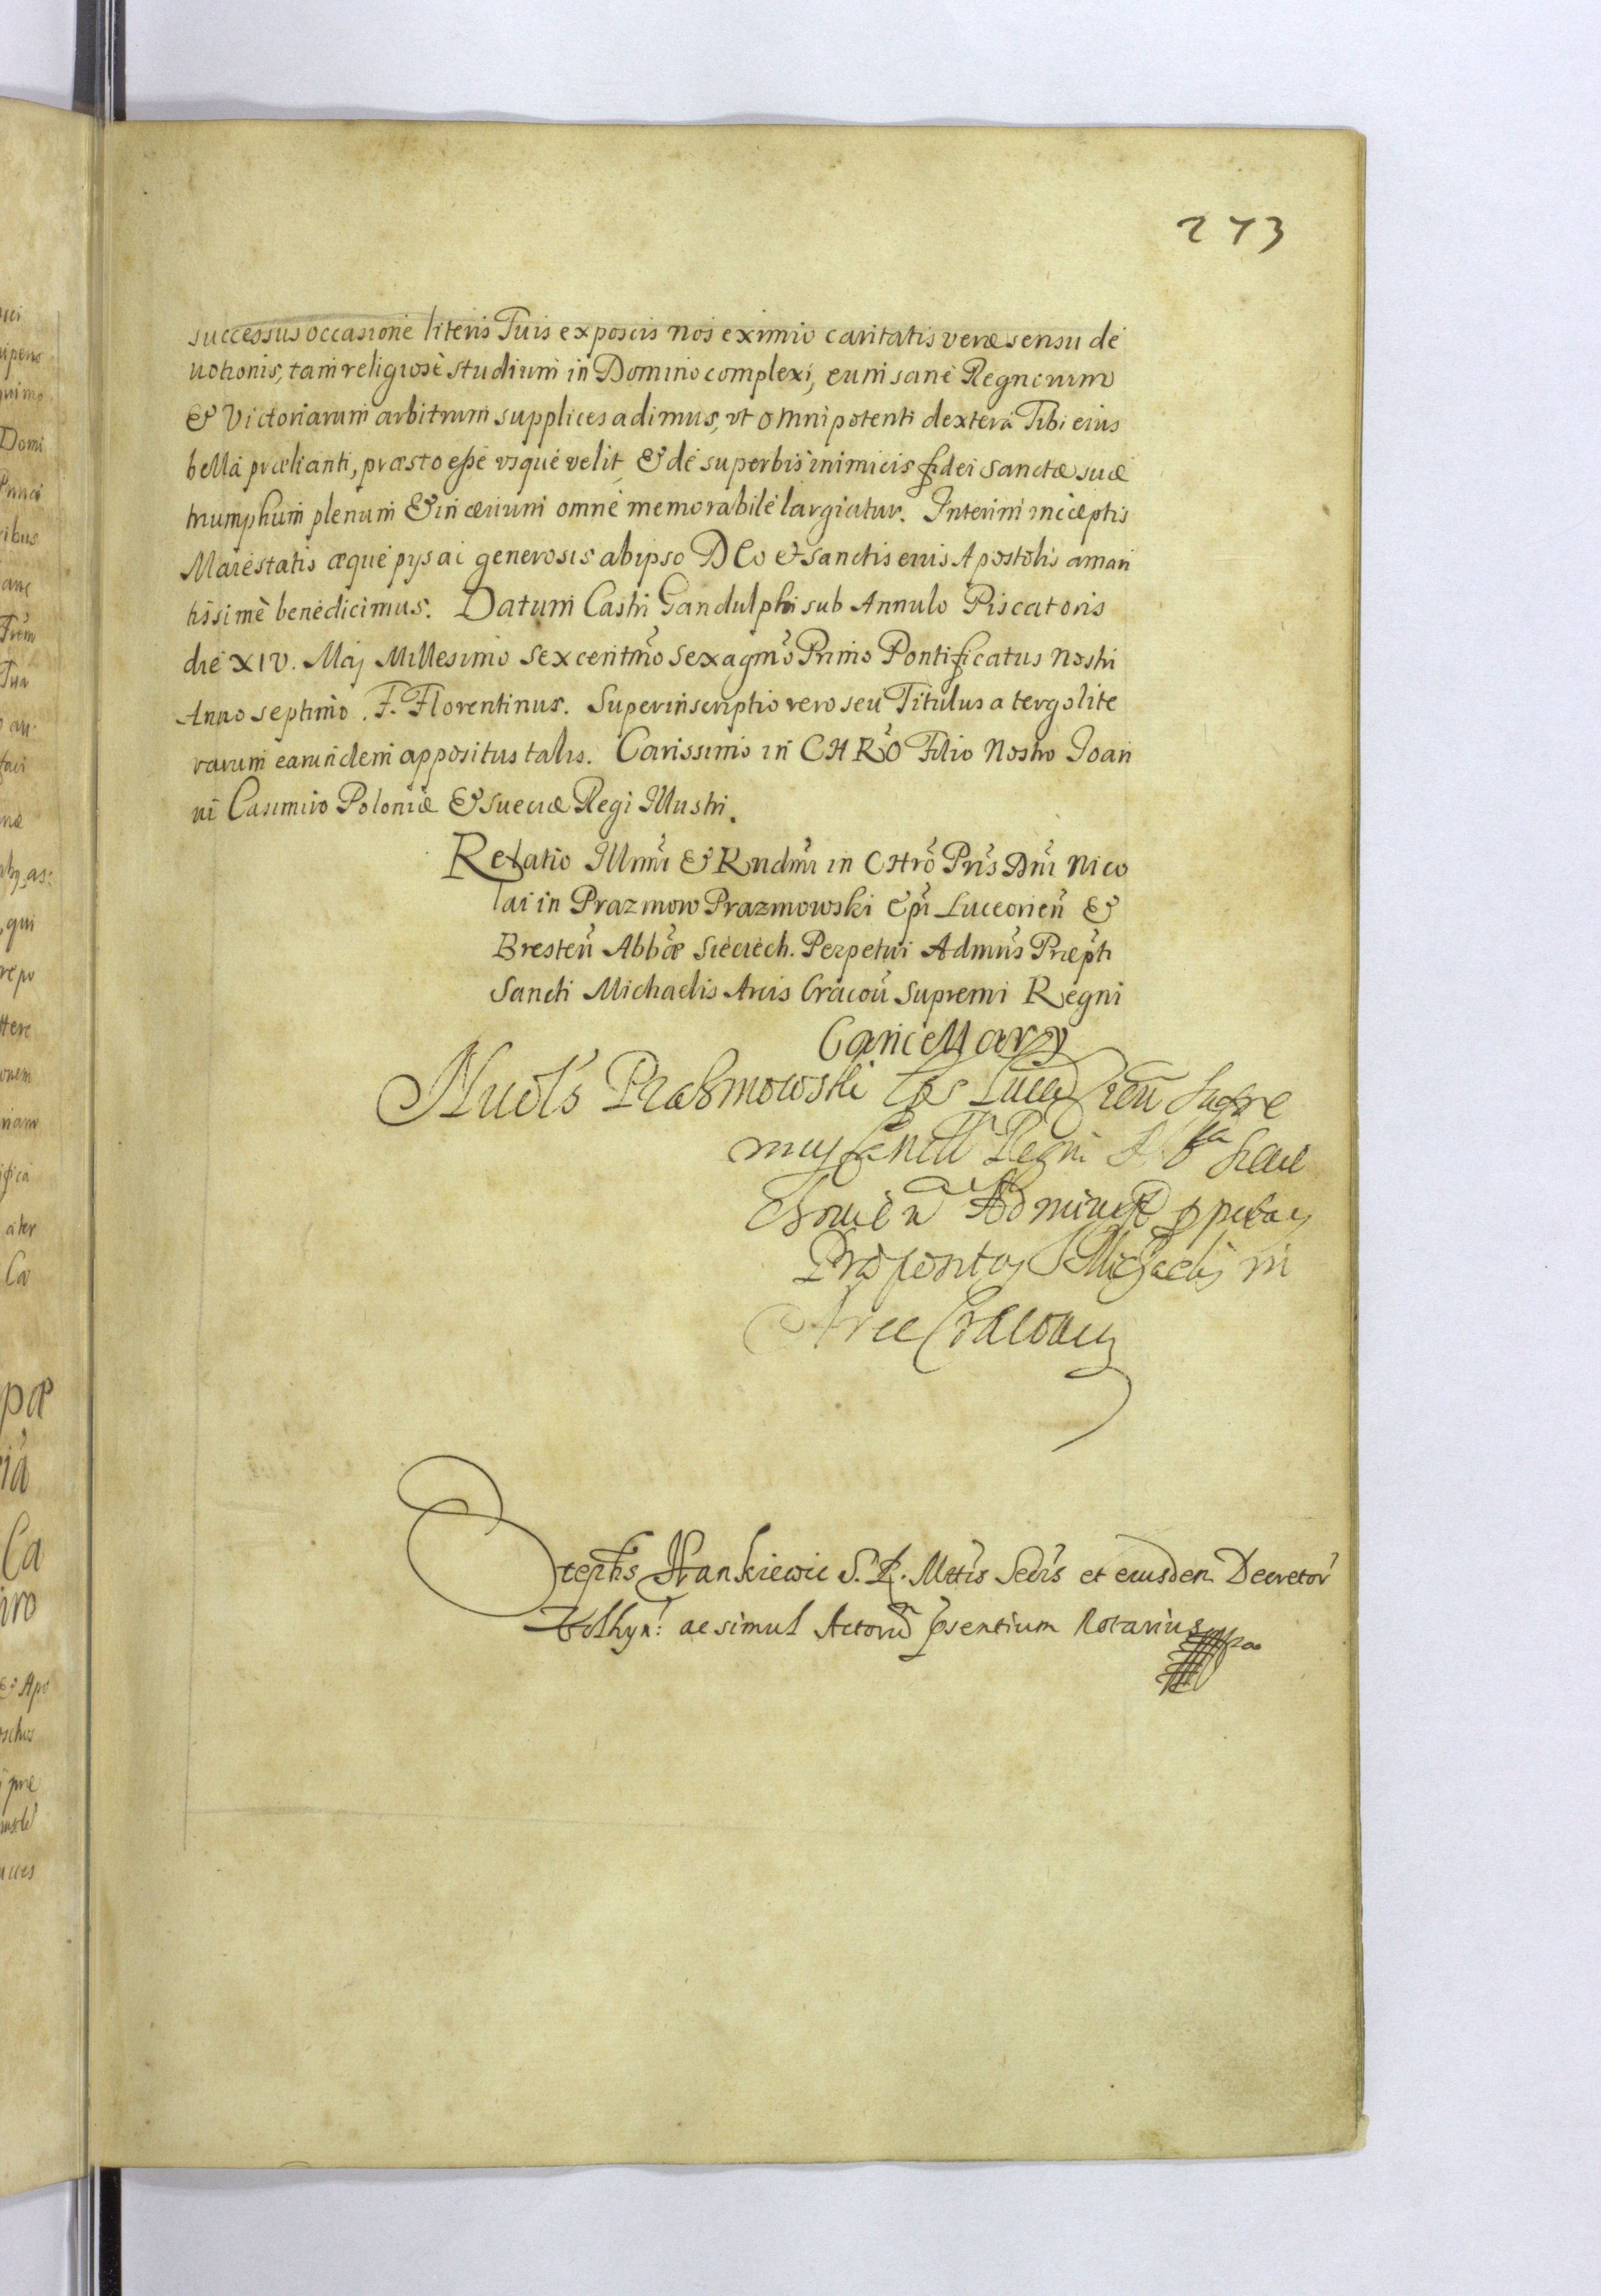 273
successus occasione literis Tuis exposcis nos eximio caritatis veræ sensu de
uotionis, tam religiosè studium in Domino complexi, eum sanè Regnorum
& Victoriarum arbitrum supplices adimus, vt omnipotenti dexterâ Tibi eius
bella prælianti, præsto eße vsque velit, & de superbis inimicis fidei sanctæ suæ
triumphum plenum & in æuum omne memorabile largiatur. Interim inceptis
Maiestatis æque pys ac generosis ab ipso DEo et sanctis eius Apostolis aman
tissimè benedicimus. Datum Castri Gandulphi sub Annulo Piscatoris
die XIV. Maj Millesimo Sexcentmo Sexagmo Primo Pontificatus Nostri
Anno septimo. F. Florentinus. Superinscriptio vero seu Titulus a tergo lite
rarum earundem appositus talis. Carissimo in CHRO Filio Nostro Joan
ni Casimiro Poloniæ & Sueciæ Regi Illustri.
Relatio Illmi & Rndmi in CHro Pris Dni Nico
lai in Prazmow Prazmowski Epi Luceorien &
Bresten Abbæ Sieciech. Perpetui Admris Præpti
Sancti Michaelis Arcis Cracou Supremi Regni
Cancellary
Nicols Prazmowski Eps Luceorien Supre
mus Cancell Regni Abba Sieci
Administ ppetuus
Præpositus S Michaelis in
Arce Cracouien
Stephs Hankiewic S. R. Mttis Sedis et eiusdem Decretor
Volhyn: ac simul Actoru psentium Notarius mpa